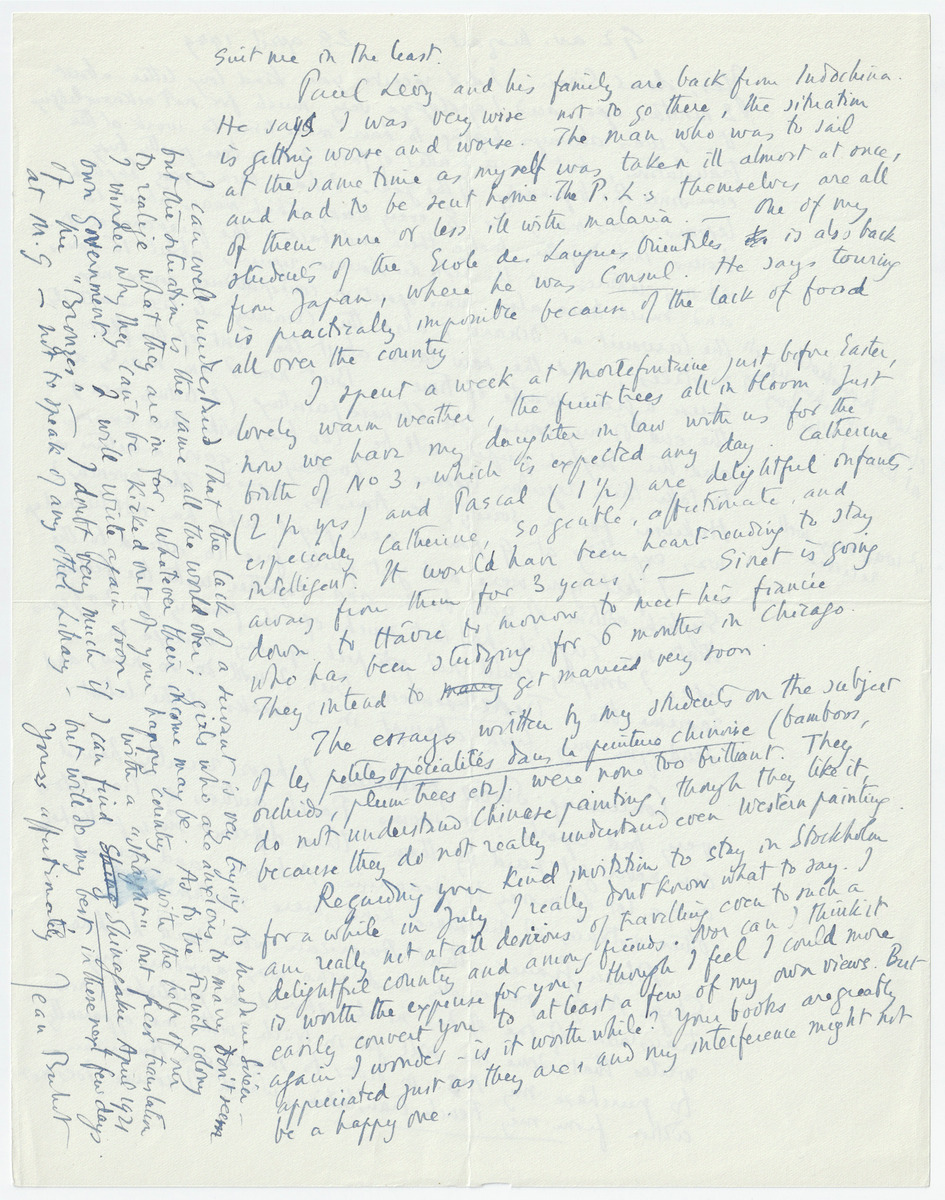 suit me in the least.
Paul Lévy and his family are back from Indochina.
He says I was very wise not to go there, the situation
is getting worse and worse. The man who was to sail
at the same time as myself was taken ill almost at once,
and had to be sent home. The P. L.s themselves are all
of them more or less ill with malaria. — One of my
students of the Ecole des Langues Orientales is also back
from Japan, where he was Consul. He says touring
is practically impossible because of the lack of food
all over the country
I spent a week at Mortefontaine just before Easter,
lovely warm weather, the fruit trees all in bloom Just
now we have my daughter in law with us for the
birth of No 3, which is expected any day. Catherine
(2 1/2 yrs) and Pascal (1 1/2) are delightful infants.
especially Catherine, so gentle, affectionate, and
intelligent. It would have been heart-rending to stay
away from them for 3 years! — Siret is going
down to Hâvre to morrow to meet his fiancée
who has been studying for 6 months in Chicago.
They intend to marry get married very soon.
The essays written by my students on the subject
of les petites spécialités dans la peinture chinoise (bamboos,
orchids, plum trees etc). were none too brilliant. They
do not understand Chinese painting, though they like it,
because they do not really understand even Western painting.
Regarding your kind invitation to stay in Stockholm
for a while in July, I really don't know what to say. I
am really not at all desirous of travelling even to such a
delightful country and among friends. Nor can I think it
is worth the expense for you, though I feel I could more
easily convert you to at least a few of my own views. But
again I wonder – is it worth while? Your books are greatly
appreciated just as they are, and my interference might not
be a happy one.
I can well understand that the lack of a servant is very trying to Madame Sirén –
but the situation is the same all the world over; girls who are anxious to marry don't seem
to realise what they are in for, whatever their income may be. As to the French colony
I wonder why they can't be kicked out of your happy country, with the help of our
own Government? I will write again soon, with a but freer translation
of the "Bronzes". I doubt very much if I can find Shinagaku April 1921
at M.G — not to speak of any other Library – but will do my best in these next few days.
Yours affectionately Jean Buhot